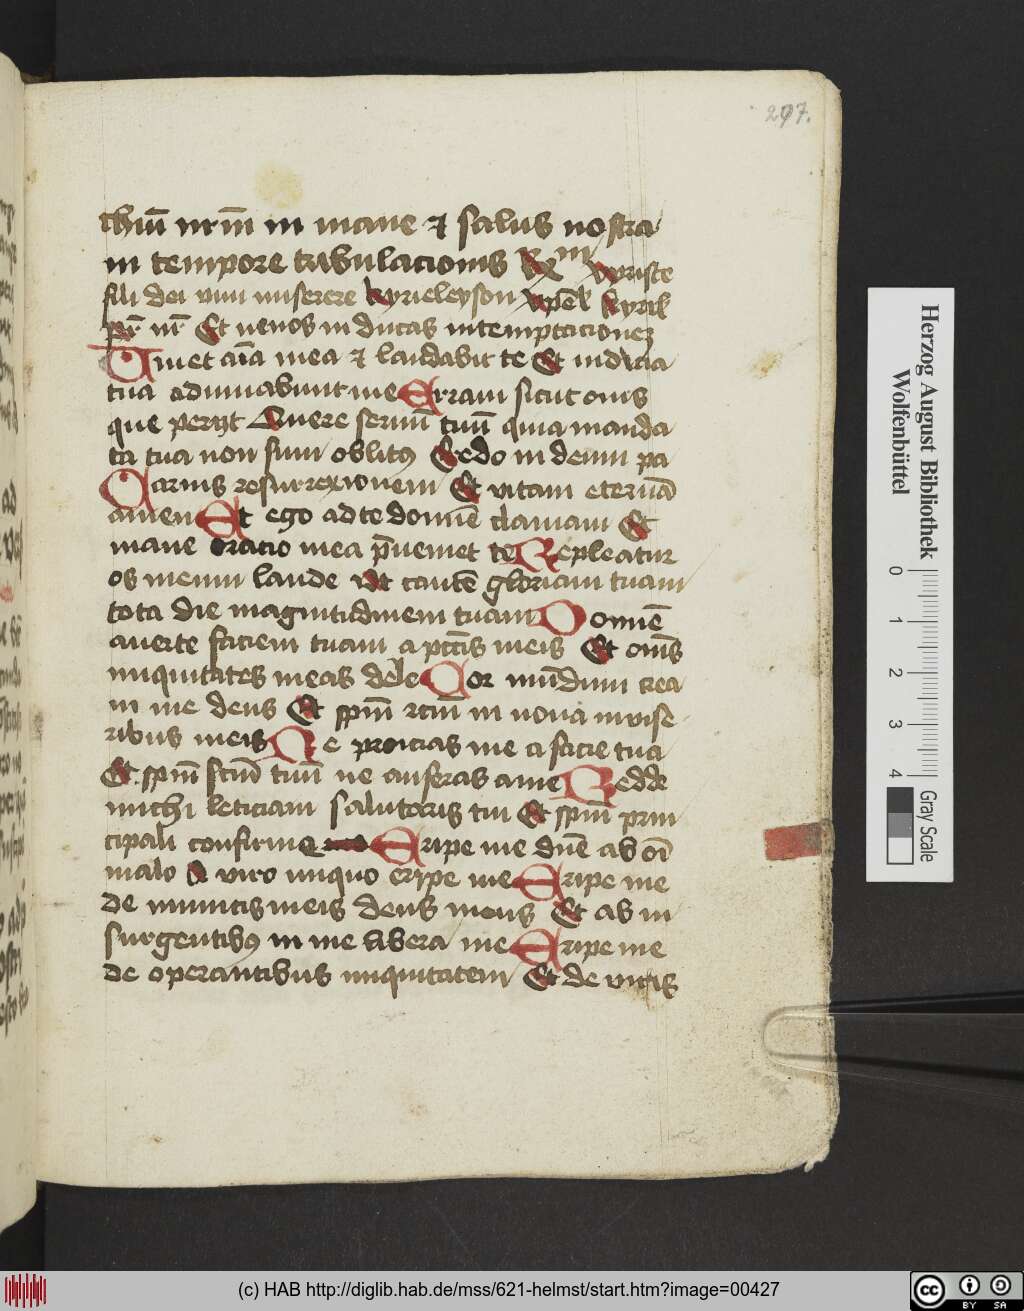 297.
chiū nr̄m in mane ⁊ salus nostra
in tempore tribulacionis Rm xpriste
fili dei viui miserere kyrieleyson xpēl kyriel
pr̄ nr̄ Et nenos in ducas intemptacionez
Uiuet aīa mea ⁊ laudabit te Et iudicia
tua adiuuabunt me Erraui sicut ouis
que perijt Quere seruū tuū quia manda
ta tua non sum oblitꝰ Credo in deum pa
Carnis resurrexionem Et vitam eternā
amen Et ego ad te domīe clamaui Et
mane oracio mea p̄ueniet te Repleatur
os meum laude Vt cantē gloriam tuam
tota die magnitudinem tuam Domīe
auerte faciem tuam a pcc̄is meis Et oīns
iniquitates meas dele Cor mūdum crea
in me deus Et spm̄ rc̄m in noua in vise
ribus meis Ne proicias me a facie tua
Et spm̄ scm̄ tuū ne auferas ame Redde
michi leticiam salutaris tui Et spm̄ prin
cipali confirma Eripe me dn̄e ab oī
malo A viro iniquo eripe me Eripe me
de inimicis meis deus meus Et ab in
surgentibꝰ in me libera me Eripe me
de operantibus iniquitatem Et de viris
Herzog August Bibliothek
Wolfenbüttel
0 1 2 3 4
Gray Scale
(c) HAB http://diglib.hab.de/mss/621-helmst/start.htm?image=00427
cc BY SA